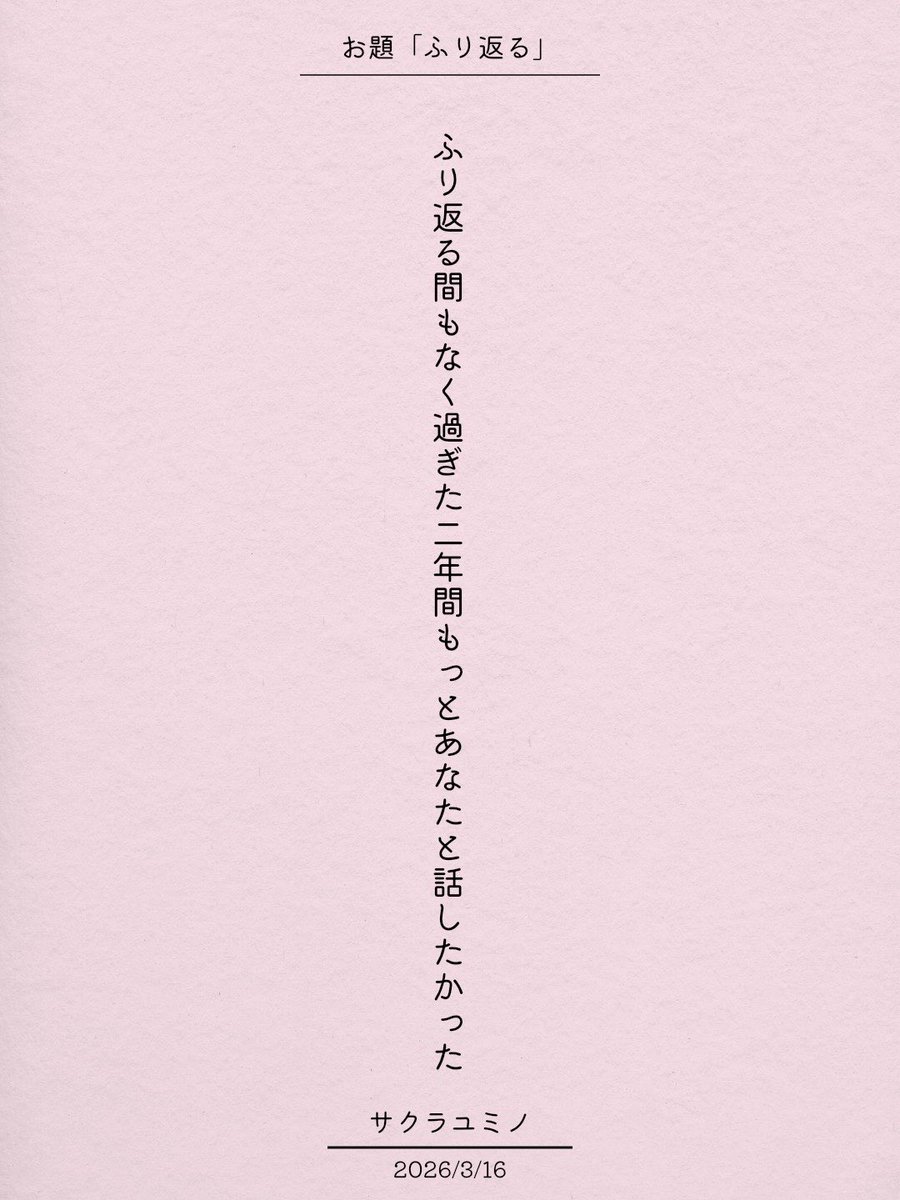 お題「ふり返る」
ふり返る間もなく過ぎた二年間もっとあなたと話したかった
サクラユミノ
2026/3/16